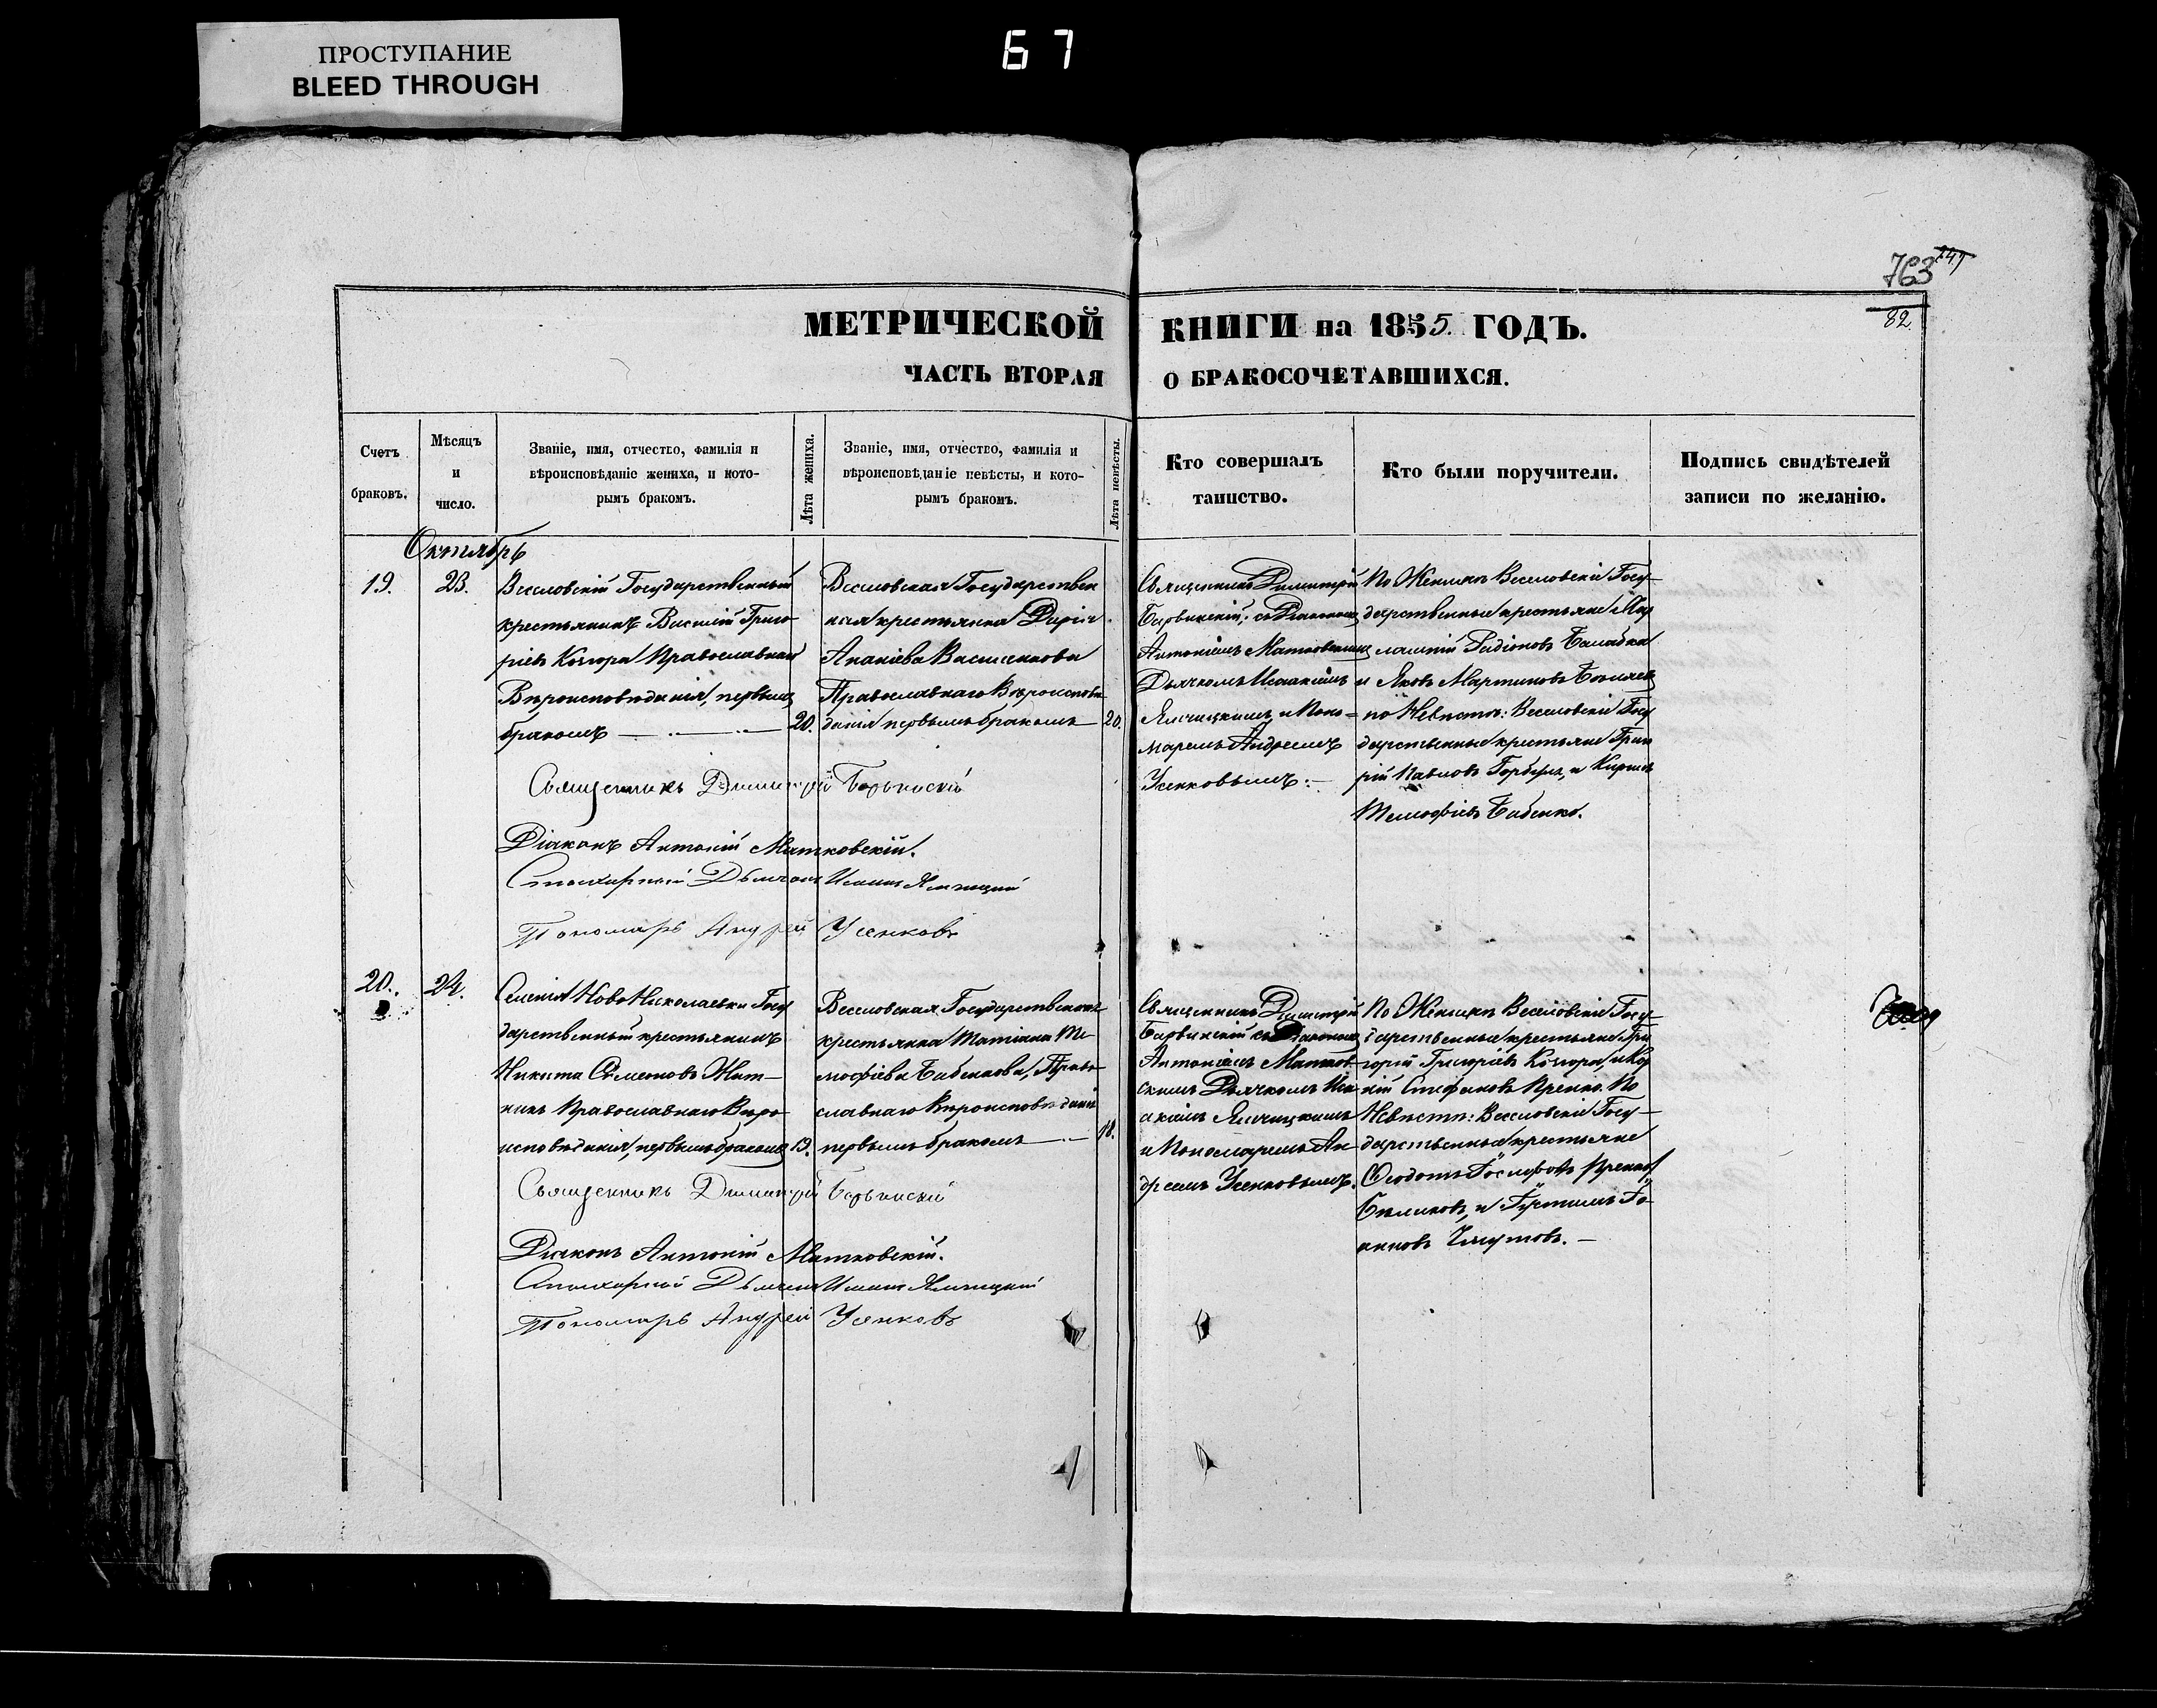 ПРОСТУПАНИЕ
BLEED THROUGH
67
763
82
МЕТРИЧЕСКОЙ КНИГИ на 1855. ГОДЪ.
ЧАСТЬ ВТОРАЯ О БРАКОСОЧЕТАВШИХСЯ.
Счетъ браковъ.
Мѣсяцъ и число.
Званіе, имя, отчество, фамилія и
вѣроисповѣданіе жениха, и кото-
рымъ бракомъ.
Лѣта жениха.
Званіе, имя, отчество, фамилія и
вѣроисповѣданіе невѣсты, и кото-
рымъ бракомъ.
Лѣта невѣсты.
Кто совершалъ
таинство.
Кто были поручители.
Подпись свидѣтелей
записи по желанію.
Октябрь
19.
23.
Веселовскій Государственный
крестьянинъ Василій Григо-
ріевъ Православнаго
Вѣроисповѣданія, первымъ
бракомъ
20.
Веселовская Государствен
ная крестьянка Дарія
Ананіева Василенкова
Православнаго Вѣроисповѣ
данія первымъ бракомъ
20.
Священникъ Димитрій
съ Діакономъ
Антоніемъ Матковскимъ
Дьячкомъ Исаакіемъ
Ялчицкимъ и Поно=
маремъ Андреемъ
Усенковымъ:
По Женихѣ Веселовскіе Госу-
дарственные крестьяне
Радіоновъ
и Яковъ Мартиновъ
по Невѣстѣ: Веселовскіе Госу
дарственные крестьяне Григо
рій Павловъ Горбуля, и
Тимофіевъ Бабенко.
Священникъ Димитрій
Діаконъ Антоній Матковскій.
Стихарный Дьячокъ Ялчицкій
Пономарь Андрей Усенковъ
20.
24.
Селенія НовоНиколаевки Госу
дарственный крестьянинъ
Никита Семеновъ Жит-
никъ Православнаго Вѣро
исповѣданія, первымъ бракомъ
19.
Веселовская Государственная
крестьянка Татіана Ти-
мофіева Бабенкова, Право
славнаго Вѣроисповѣданія
первымъ бракомъ
18.
Священникъ Димитрій
съ Діакономъ
Антоніемъ Матков-
скимъ Дьячкомъ Иса
акіемъ Ялчицкимъ
и Пономаремъ Ан-
дреемъ Усенковымъ.
По Женихѣ Веселовскіе Госу-
дарственные крестьяне Гри
горій Григоріевъ
Стефановъ По
Невѣстѣ: Веселовскіе Госу-
дарственные крестьяне
Ѳеодотъ
Бѣликовъ, и Іустинъ Іо-
анновъ
Священникъ Димитрій
Діаконъ Антоній Матковскій.
Стихарный Дьячокъ Ялчицкій
Пономарь Андрей Усенковъ